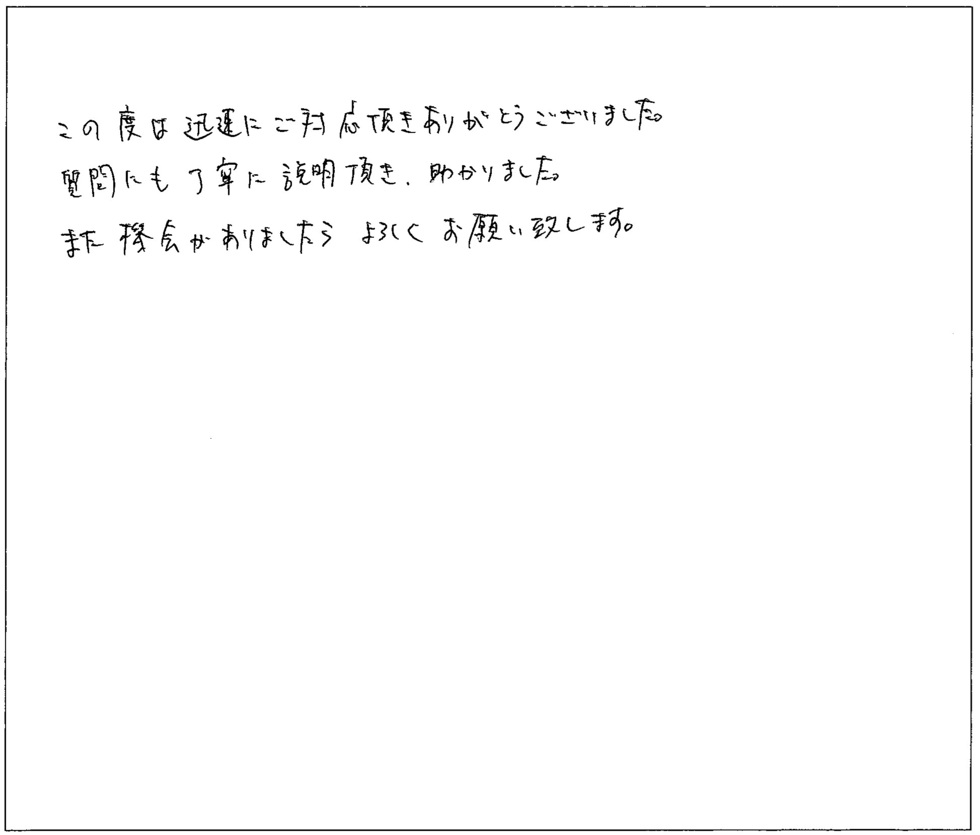 この度は迅速にご対応頂きありがとうございました。
質問にも丁寧に説明頂き、助かりました。
また機会がありましたらよろしくお願い致します。